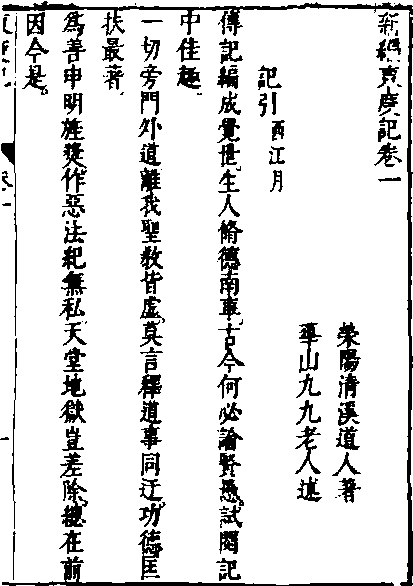 新編東度記卷一
滎陽清溪道人著
華山九九老人述
記引 西江月
傳記編成覺世生人脩德南車古今何必論賢愚試閱記
中佳趣
一切旁門外道離我聖教皆虛莫言釋道事同迂功德匡
扶最著
為善申明旌奬作惡法紀無私天堂地獄豈差除總在前
因今是